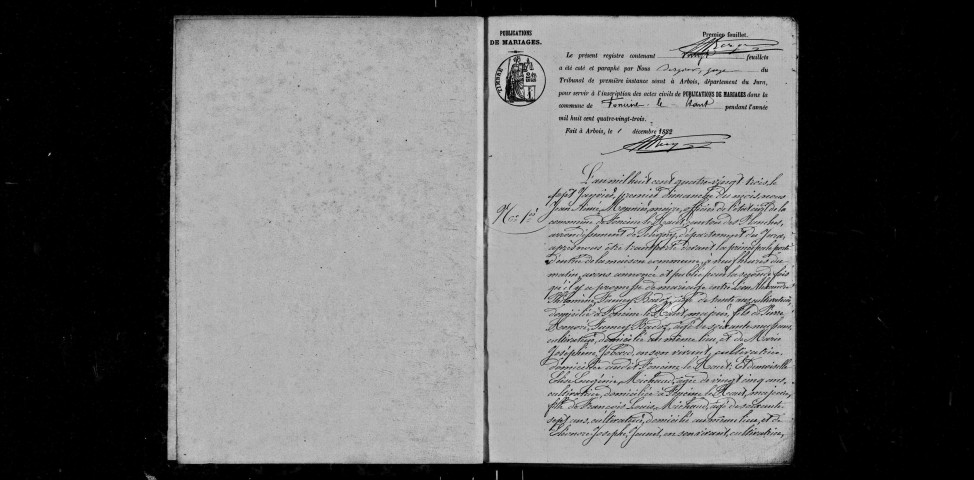 PUBLICATIONS
DE MARIAGES.
TIMBRE
Premier feuillet.
Le présent registre contenant feuillets
a été coté et paraphé par Nous du
Tribunal de première instance séant à Arbois, département du Jura,
pour servir à l'inscription des actes civils de PUBLICATIONS DE MARIAGES dans la
commune de Foncine-le-Haut pendant l'année
mil huit cent quatre-vingt-trois.
Fait à Arbois, le 1 décembre 1882
N° 1er
L'an mil huit cent quatre-vingt trois, le
sept Janvier, premier dimanche du mois, nous
Jean Aimé Monnier, maire, officier de l'état civil de la
commune de Foncine le Haut, canton des Planches,
arrondissement de Poligny, département du Jura,
après nous être transporté devant la principale porte
d'entrée de la maison commune, à neuf heures du
matin, avons annoncé et publié pour la seconde fois
qu'il y a promesse de mariage entre Léon Alexandre
Philémin, Badoz, âgé de trente ans, cultivateur,
domicilié à Foncine le Haut, majeur, fils de Pierre
Honoré, Badoz, âgé de soixante neuf ans,
cultivateur, domicilié au même lieu, et de Marie
Joséphine Jobard, en son vivant, cultivatrice,
domiciliée audit Foncine le Haut; Et demoiselle
Elise Eugénie Michaud, âgée de vingt cinq ans,
cultivatrice, domiciliée à Foncine le Haut, majeure,
fille de François Louis Michaud, âgé de soixante
sept ans, cultivateur, domicilié au même lieu, et de
Joseph, en son vivant, cultivatrice,